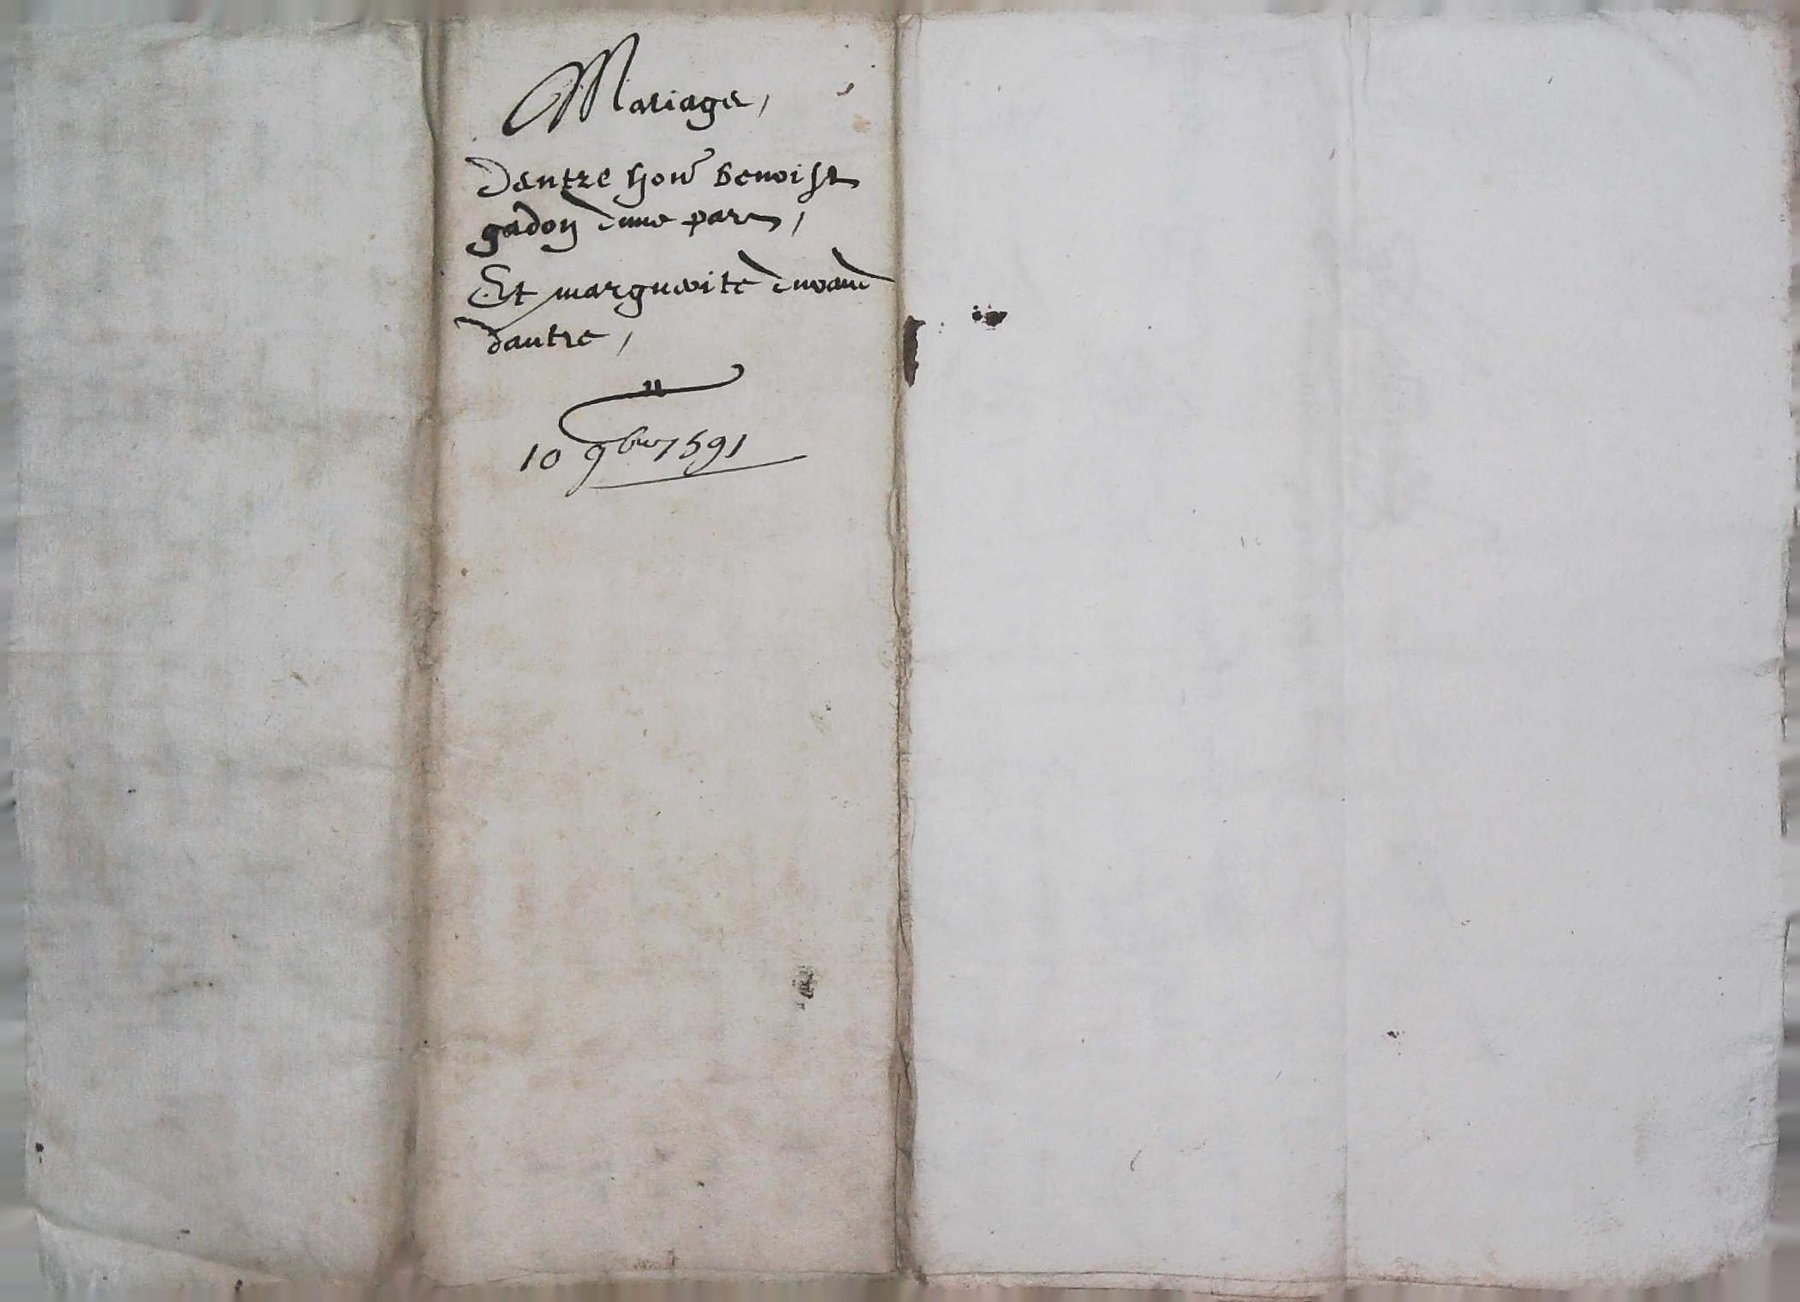 Mariage,
Dentre hon^e benoist
gadon d'une part,
Et marguerite durand
dautre,
10 9bre 1591